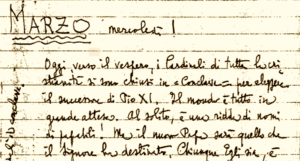 MARZO mercoledì 1
Oggi verso il vespero, i Cardinali di tutta la cri
stianità si sono chiusi in "Conclave" per eleggere
il successore di Pio XI. Il mondo è tutto in
grande attesa. Al solito, è una ridda di nomi
di papabili! Ma il nuovo Papa sarà quello che
il Signore ha destinato. Chiunque Egli sia, è